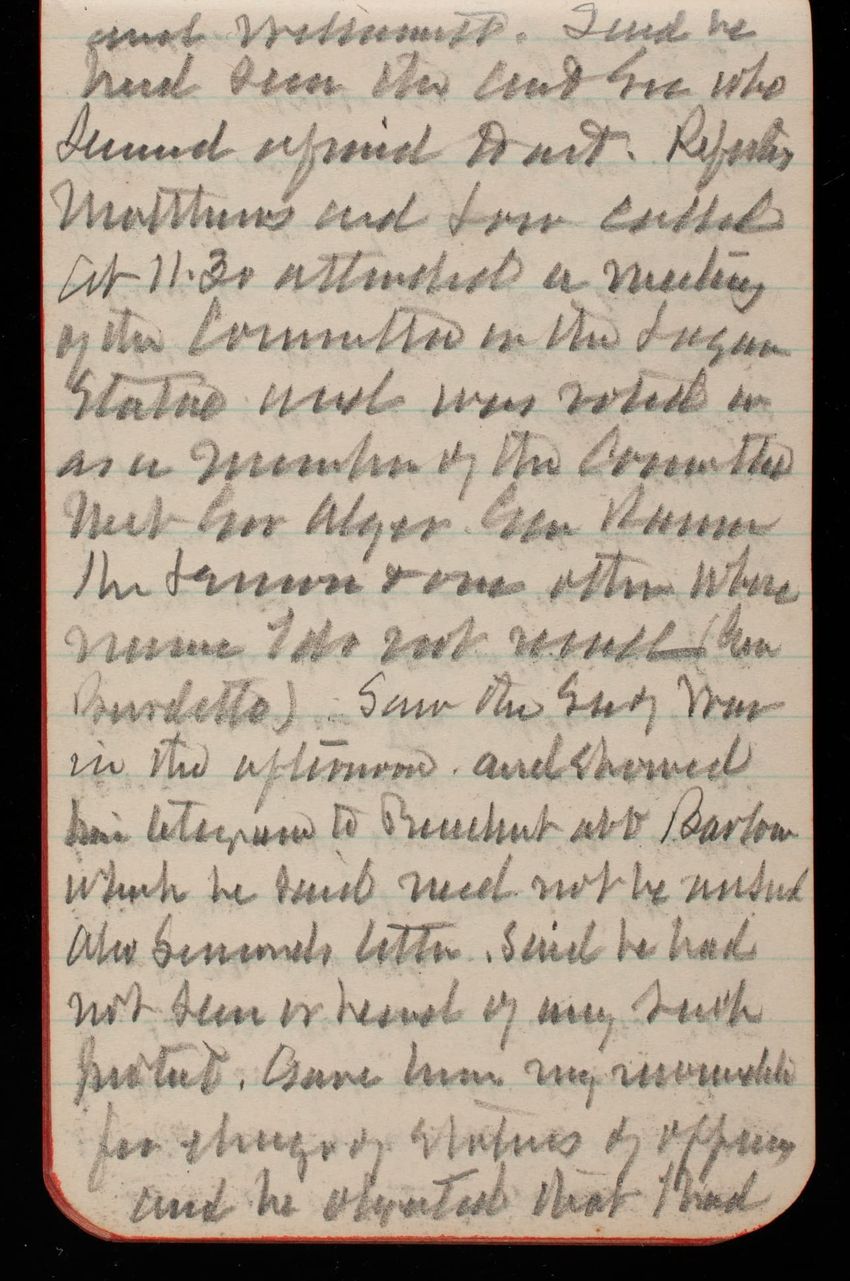 and Willamette. Said he
had seen the
seemed afraid to act.
Matthews and Low called
At 11.30 attended a meeting
of the Committee on the Logan
Statue and was voted in
as a member of the Committee
Met Gov Alger Gen
& one other whose
name I do not recall (Gen
Burdette) Saw the Sec of War
in the afternoon. and showed
him telegram to President abt Barlow
which he said need not be
Also letter. Said he had
not seen or heard of any such
protest. Gave him my
for change of Stations of officers
and he objected that I had